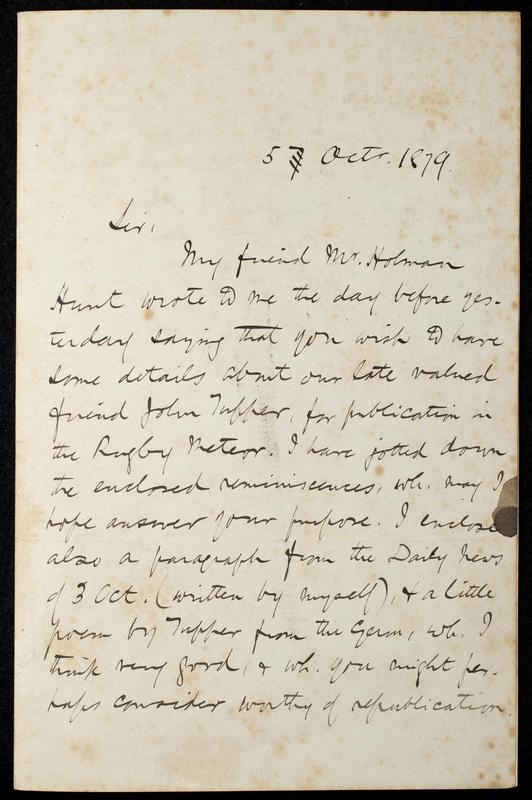 5 Octr. 1879.
Sir,
My friend Mr. Holman
Hunt wrote to me the day before yes-
terday saying that you wish to have
some details about our late valued
friend John Tupper, for publication in
the Rugby Meteor. I have jotted down
the enclosed reminiscences, wh. may I
hope answer your purpose. I enclose
also a paragraph from the Daily News
of 3 Oct. (written by myself), & a little
poem by Tupper from the Germ, wh. I
think very good, & wh. you might per-
haps consider worthy of republication.